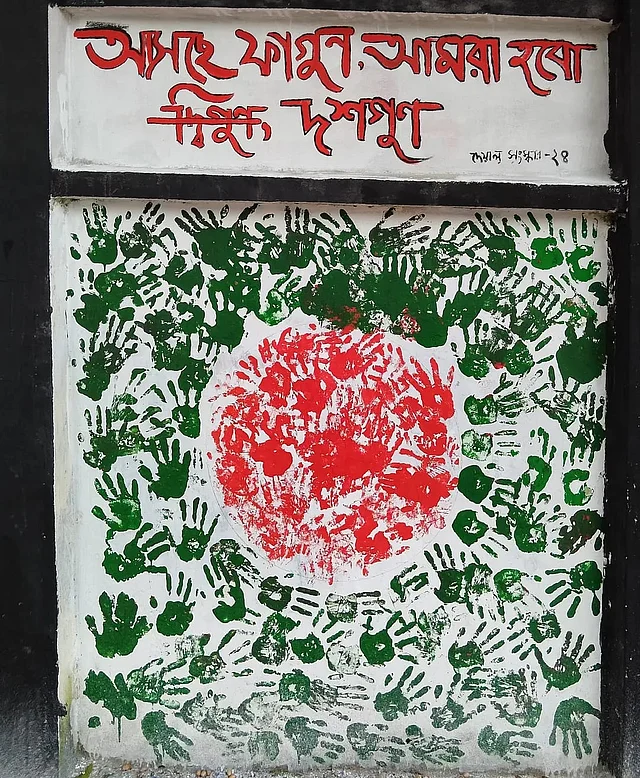 আসছে ফাগুন, আমরা হবো
দ্বিগুণ, দশগুণ
দেয়াল সংস্কার-২৪